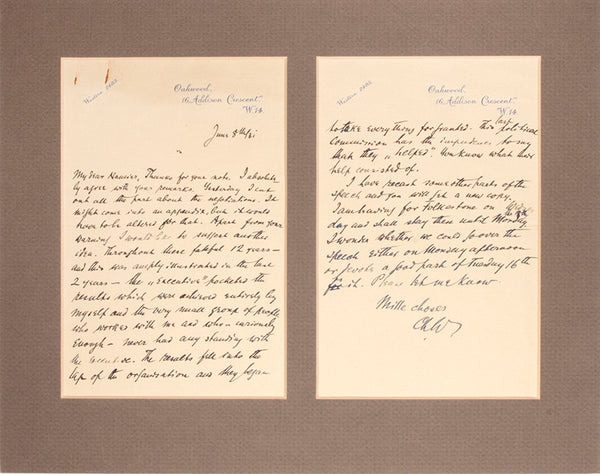 Western 0482
Oakwood,
16, Addison Crescent,
W.14.
June 8th/21
My dear Namier, Thanks for your note. I absolute
ly agree with your remarks. Yesterday I cut
out all the part about the negotiations. It
might come into an appendix, but it would
have to be altered for that. Apart from your
warning I would like to suggest another
idea. Throughout these fateful 12 years —
and this was amply illustrated in the last
2 years — the "Executive" pocketed the
results which were achieved entirely by
myself and the very small group of people
who worked with me and who — curiously
enough — never had any standing with
the executive. The results fell into the
lap of the organisation and they began
Western 0482
Oakwood,
16, Addison Crescent,
W.14.
to take everything for granted. This last political
Commission has the impudence to say
that they "helped". You know what their
help consisted of.
I have recast some other parts of the
speech and you will get a new copy.
I am leaving for Folkestone on
day and shall stay there until Monday.
I wonder whether we could go over the
speech either on Monday afternoon
or devote a good part of Tuesday 16th
for it. Please let me know
Mille choses
Ch.W.